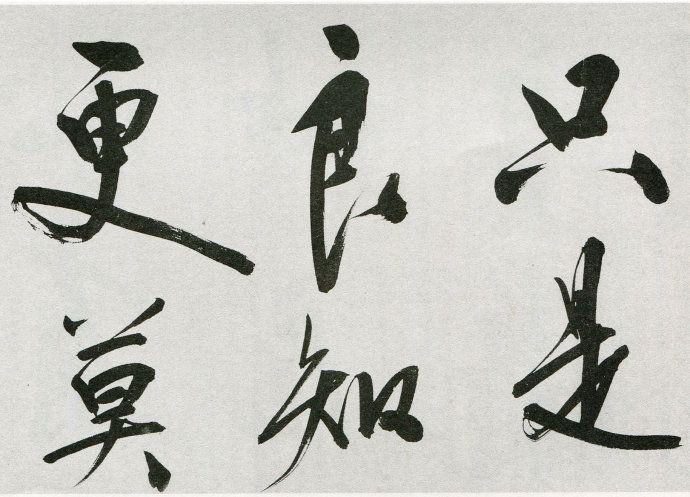 只是
良知
更莫